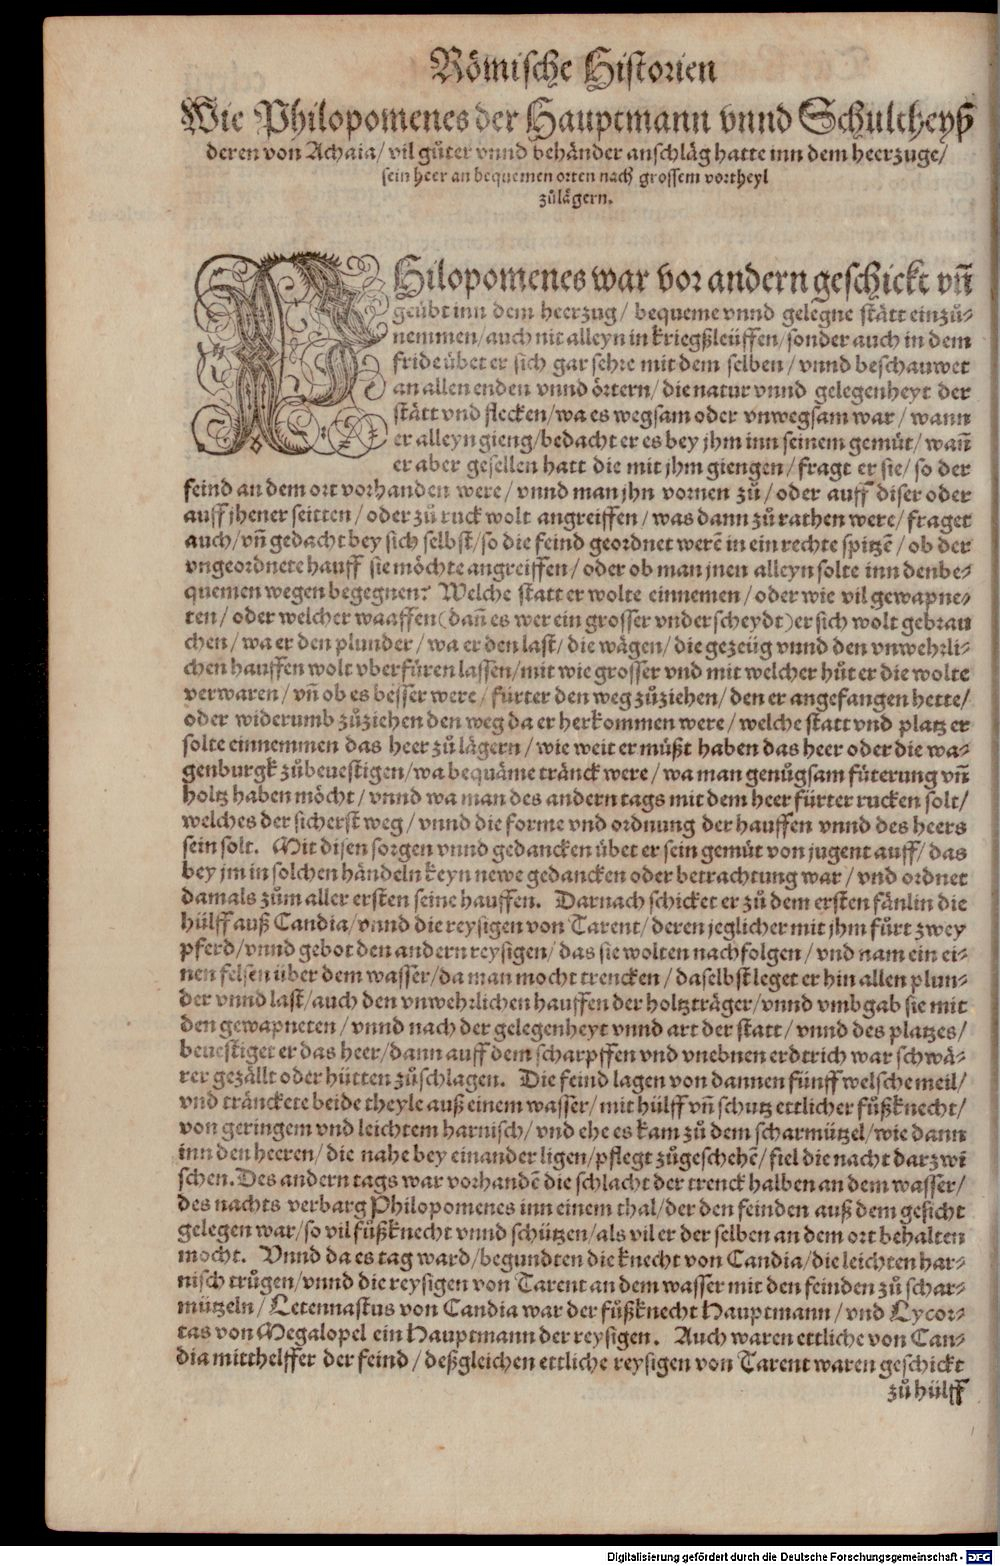 Römische Historien
Wie Philopomenes der Hauptmann vnnd Schultheyß
deren von Achaia/ vil gůter vnnd behänder anschläg hatte inn dem heerzuge/
sein heer an bequemen orten nach grossem vortheyl
zůlägern.
PHilopomenes war vor andern geschickt vñ
geübt inn dem heerzug/ bequeme vnnd gelegne stätt einzů-
nemmen/ auch nit alleyn in kriegßleüffen/ sonder auch in dem
fride übet er sich gar sehre mit dem selben/ vnnd beschauwet
an allen enden vnnd örtern/ die natur vnnd gelegenheyt der
stätt vnd flecken/ wa es wegsam oder vnwegsam war/ wann
er alleyn gieng/ bedacht er es bey jhm inn seinem gemüt/ wañ
er aber gesellen hatt die mit jhm giengen/ fragt er sie/ so der
feind an dem ort vorhanden were/ vnnd man jhn vornen zů/ oder auff diser oder
auff jhener seitten/ oder zů ruck wolt angreiffen/ was dann zů rathen were/ fraget
auch/ vñ gedacht bey sich selbst/ so die feind geordnet werẽ in ein rechte spitzẽ/ ob der
vngeordnete hauff sie möchte angreiffen/ oder ob man jnen alleyn solte inn den be-
quemen wegen begegnen? Welche statt er wolte einnemen/ oder wie vil gewapne-
ten/ oder welcher waaffen (dañ es wer ein grosser vnderscheydt) er sich wolt gebrau
chen/ wa er den plunder/ wa er den last/ die wägen/ die gezeüg vnnd den vnwehrli-
chen hauffen wolt vberfüren lassen/ mit wie grosser vnd mit welcher hůt er die wolte
verwaren/ vñ ob es besser were/ fürter den weg zůziehen/ den er angefangen hette/
oder widerumb zůziehen den weg da er herkommen were/ welche statt vnd platz er
solte einnemmen das heer zů lägern/ wie weit er müßt haben das heer oder die wa-
genburgk zůbeuestigen/ wa bequäme tränck were/ wa man genůgsam füterung vñ
holtz haben möcht/ vnnd wa man des andern tags mit dem heer fürter rucken solt/
welches der sicherst weg/ vnnd die forme vnd ordnung der hauffen vnnd des heers
sein solt. Mit disen sorgen vnnd gedancken übet er sein gemüt von jugent auff/ das
bey jm in solchen händeln keyn newe gedancken oder betrachtung war/ vnd ordnet
damals zům aller ersten seine hauffen. Darnach schicket er zů dem ersten fänlin die
hülff auß Candia/ vnnd die reysigen von Tarent/ deren jeglicher mit jhm fůrt zwey
pferd/ vnnd gebot den andern reysigen/ das sie wolten nachfolgen/ vnd nam ein ei-
nen felsen über dem wasser/ da man mocht trencken/ daselbst leget er hin allen plun-
der vnnd last/ auch den vnwehrlichen hauffen der holtzträger/ vnnd vmbgab sie mit
den gewapneten/ vnnd nach der gelegenheyt vnnd art der statt/ vnnd des platzes/
beuestiget er das heer/ dann auff dem scharpffen vnd vnebnen erdtrich war schwä-
rer gezällt oder hütten zůschlagen. Die feind lagen von dannen fünff welsche meil/
vnd tränckete beide theyle auß einem wasser/ mit hülff vñ schutz ettlicher fůßknecht/
von geringem vnd leichtem harnisch/ vnd ehe es kam zů dem scharmützel/ wie dann
inn den heeren/ die nahe bey einander ligen/ pflegt zůgeschehẽ/ fiel die nacht darzwi
schen. Des andern tags war vorhandẽ die schlacht der trenck halben an dem wasser/
des nachts verbarg Philopomenes inn einem thal/ der den feinden auß dem gesicht
gelegen war/ so vil fůßknecht vnnd schützen/ als vil er der selben an dem ort behalten
mocht. Vnnd da es tag ward/ begundten die knecht von Candia/ die leichten har-
nisch trůgen/ vnnd die reysigen von Tarent an dem wasser mit den feinden zů schar-
mützeln/ Letennastus von Candia war der fůßknecht Hauptmann/ vnd Lycor-
tas von Megalopel ein Hauptmann der reysigen. Auch waren ettliche von Can-
dia mitthelffer der feind/ deßgleichen ettliche reysigen von Tarent waren geschickt
zů hülff
Digitalisierung gefördert durch die Deutsche Forschungsgemeinschaft - DFG